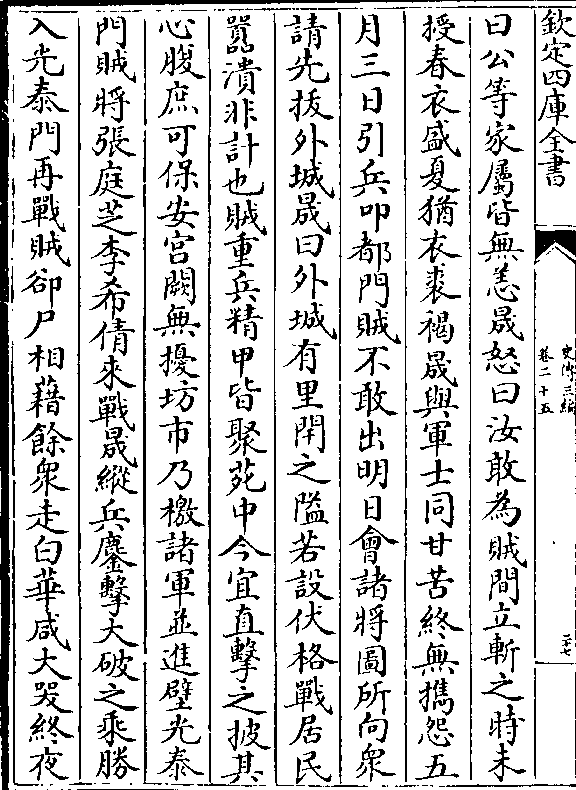 欽定四庫全書
史傳三編
卷二十五
二十七
曰公等家屬皆無恙晟怒曰汝敢為賊間立斬之時未
授春衣盛夏猶衣裘褐晟與軍士同甘苦終無攜怨五
月三日引兵叩都門賊不敢出明日會諸將圖所向衆
請先拔外城晟曰外城有里閈之隘若設伏格戰居民
囂潰非計也賊重兵精甲皆聚苑中今宜直擊之披其
心腹庶可保安宮闕無擾坊市乃檄諸軍並進壁光泰
門賊將張庭芝李希倩來戰晟縱兵鏖擊大破之乘勝
入光泰門再戰賊卻尸相藉餘衆走白華咸大哭終夜